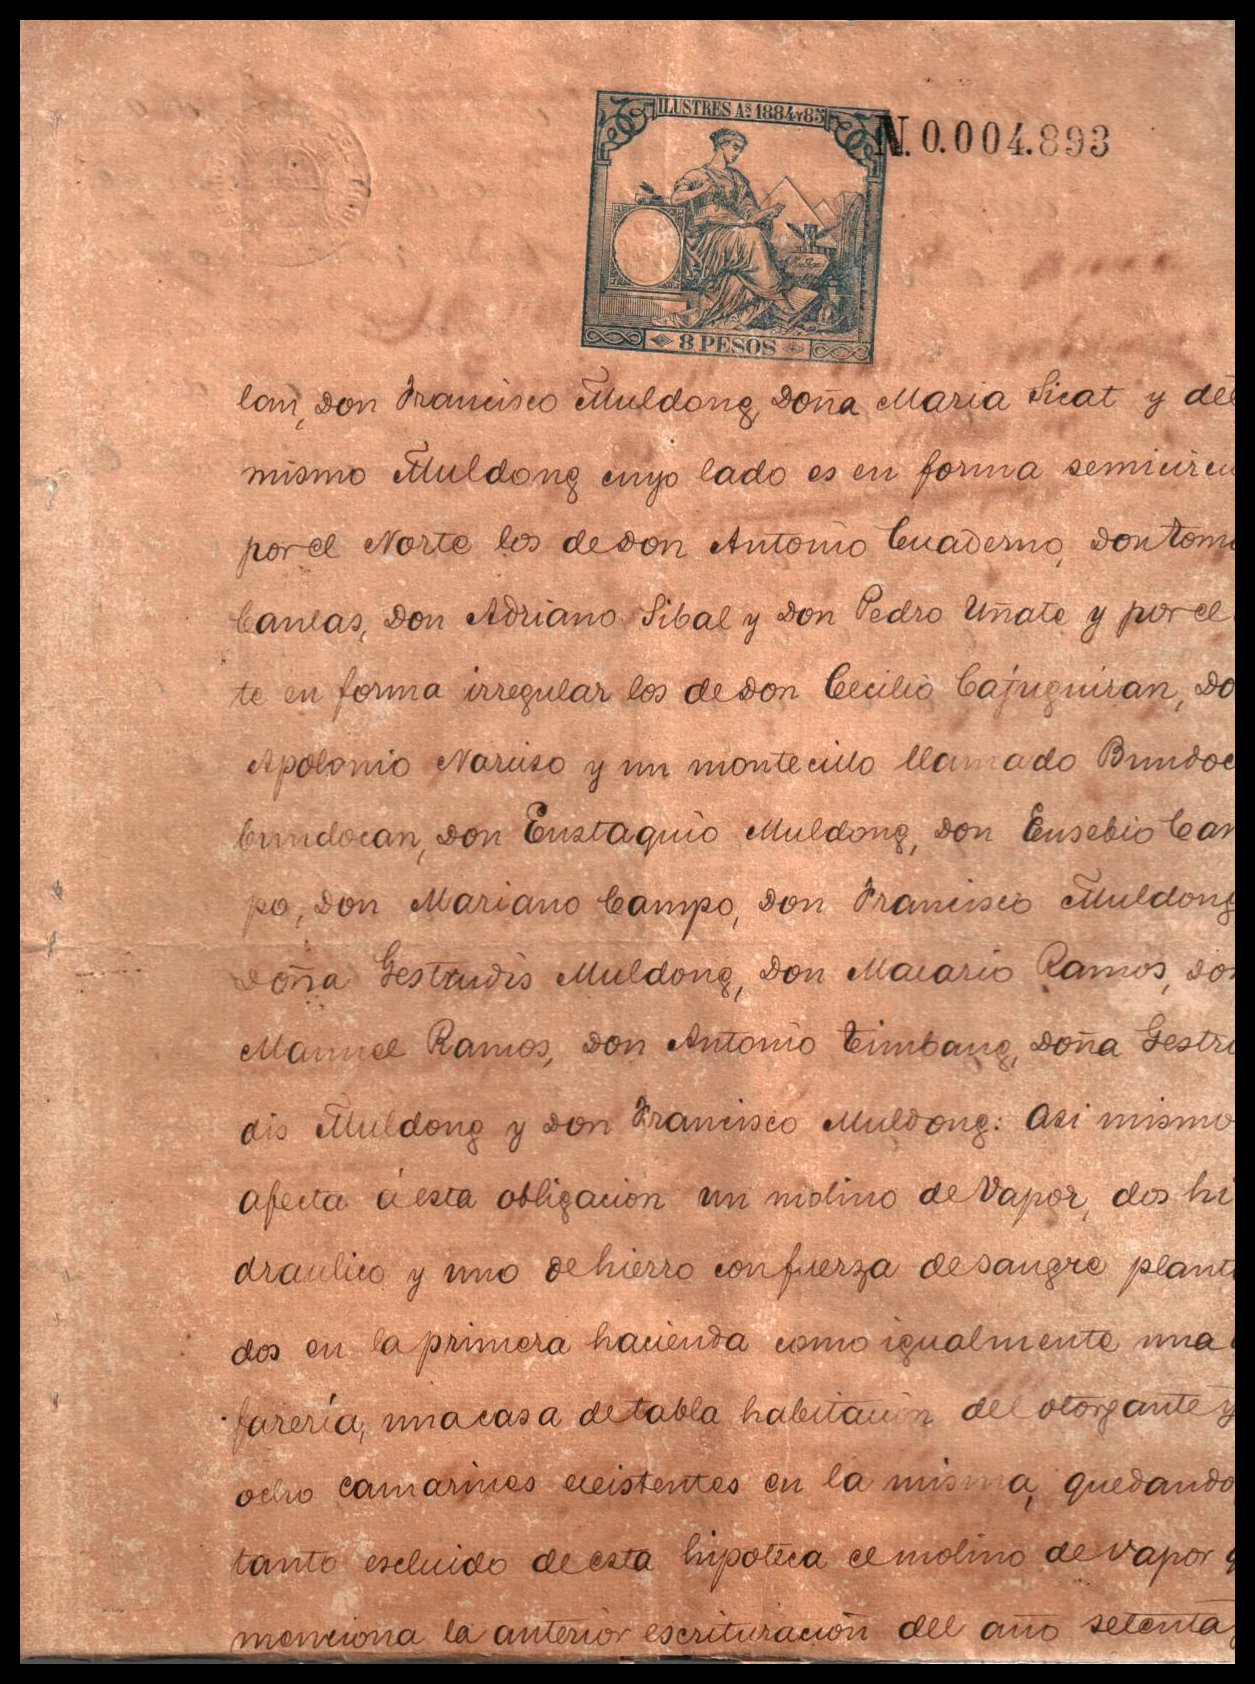 ILUSTRES As. 1884 Y 85
N. 0.004.893
8 PESOS
lan, Don Francisco Muldong, Doña Maria Sicat y del
mismo Muldong cuyo lado es en forma semicircu
por el Norte los de Don Antonio Cuaderno, Don Tom
Canlas, Don Adriano Sibal y Don Pedro Uñate y por el
te en forma irregular los de Don Cecilio Cajuguiran, Do
Apolonio Narciso y un montecillo llamado Bundoc
bundocan, Don Eustaquio Muldong, Don Eusebio Cam
po, Don Mariano Campo, Don Francisco Muldong
Doña Gestrudis Muldong, Don Macario Ramos, Don
Manuel Ramos, Don Antonio Timbang, Doña Gestru
dis Muldong y Don Francisco Muldong: Asi mismo
afecta á esta obligacion un molino de Vapor, dos hi
draulico y uno de hierro con fuerza de sangre planta
dos en la primera hacienda como igualmente una
farería, una casa de tabla habitacion del otorgante y
ocho camarines ecsistentes en la misma, quedando
tanto escluido de esta hipoteca el molino de vapor q
menciona la anterior escrituracion del año setenta